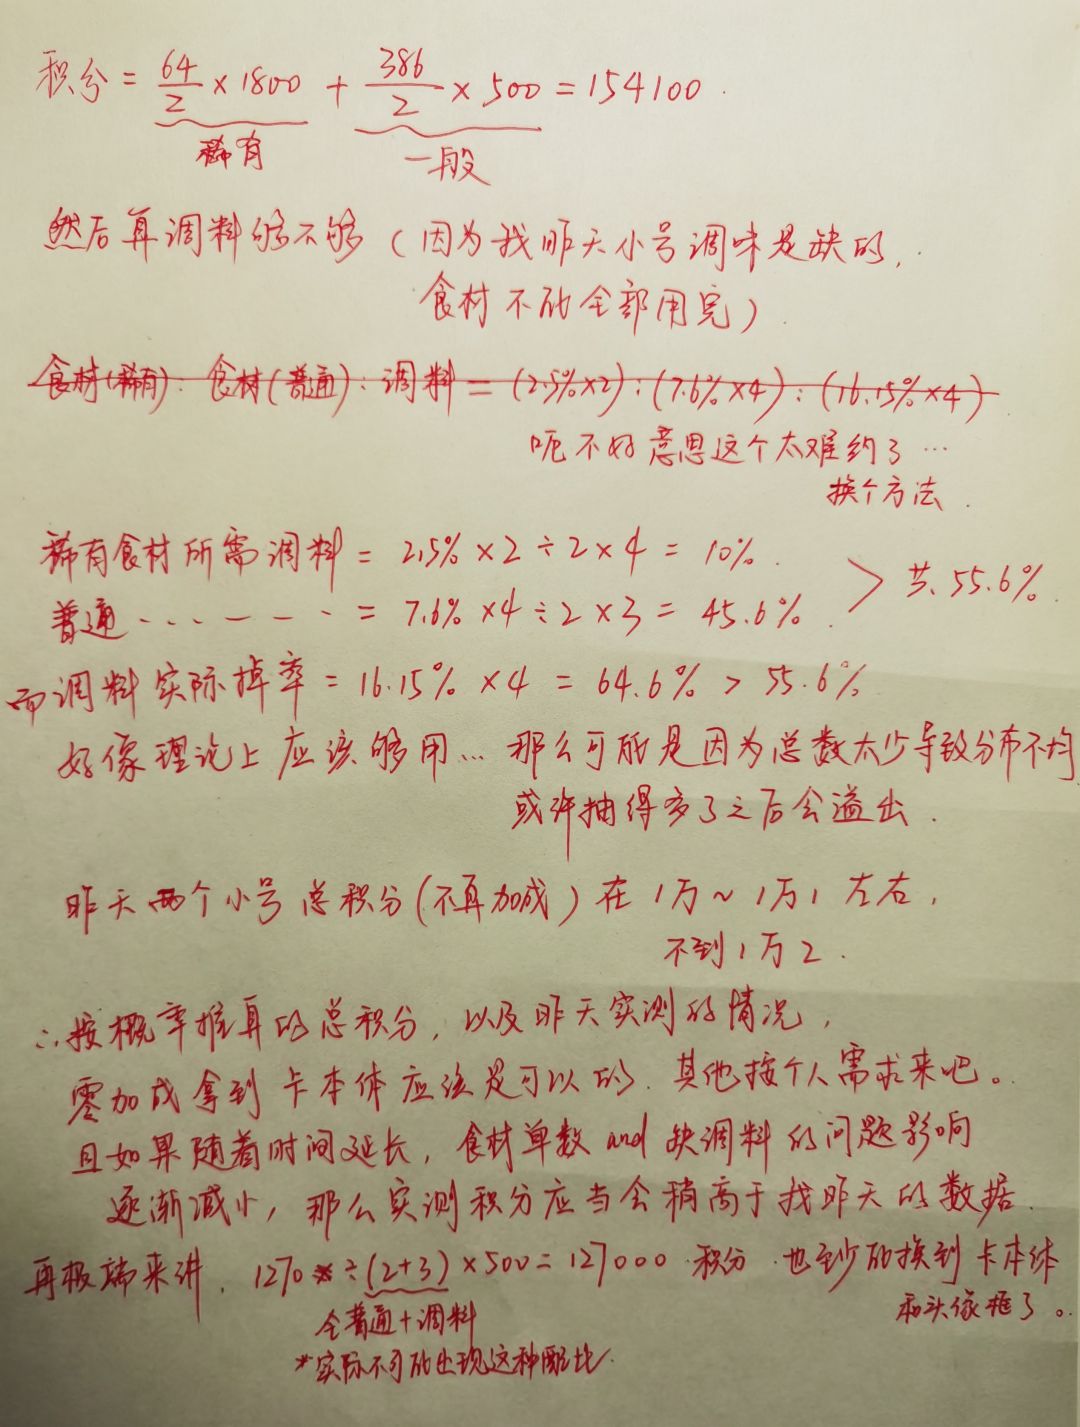 积分 = 64/2 × 1800 + 386/2 × 500 = 154100.
稀有 一般
然后算调料够不够（因为我昨天小号调味是缺的，
食材不能全部用完）.
食材(稀有)：食材(普通)：调料 = (2.5%×2)：(7.6%×4)：(16.15%×4)
呃不好意思这个太难约了…
换个方法.
稀有食材所需调料 = 2.5% × 2 ÷ 2 × 4 = 10%.
普通········ = 7.6% × 4 ÷ 2 × 3 = 45.6%. > 共 55.6%.
而调料实际掉率 = 16.15% × 4 = 64.6% > 55.6%
好像理论上应该够用… 那么可能是因为总数太少导致分布不均
或许抽得多了之后会溢出.
昨天两个小号总积分(不算加成)在1万~1万1左右，
不到1万2.
∴按概率推算的总积分，以及昨天实测的情况，
零加成拿到卡本体应该是可以的.其他按个人需求来吧。
且如果随着时间延长，食材单数and缺调料的问题影响
逐渐减小，那么实测积分应当会稍高于我昨天的数据.
再极端来讲，1270* ÷ (2+3) × 500 = 127000 积分.也至少能换到卡本体
和头像框了。
全普通+调料
*实际不可能出现这种配比.